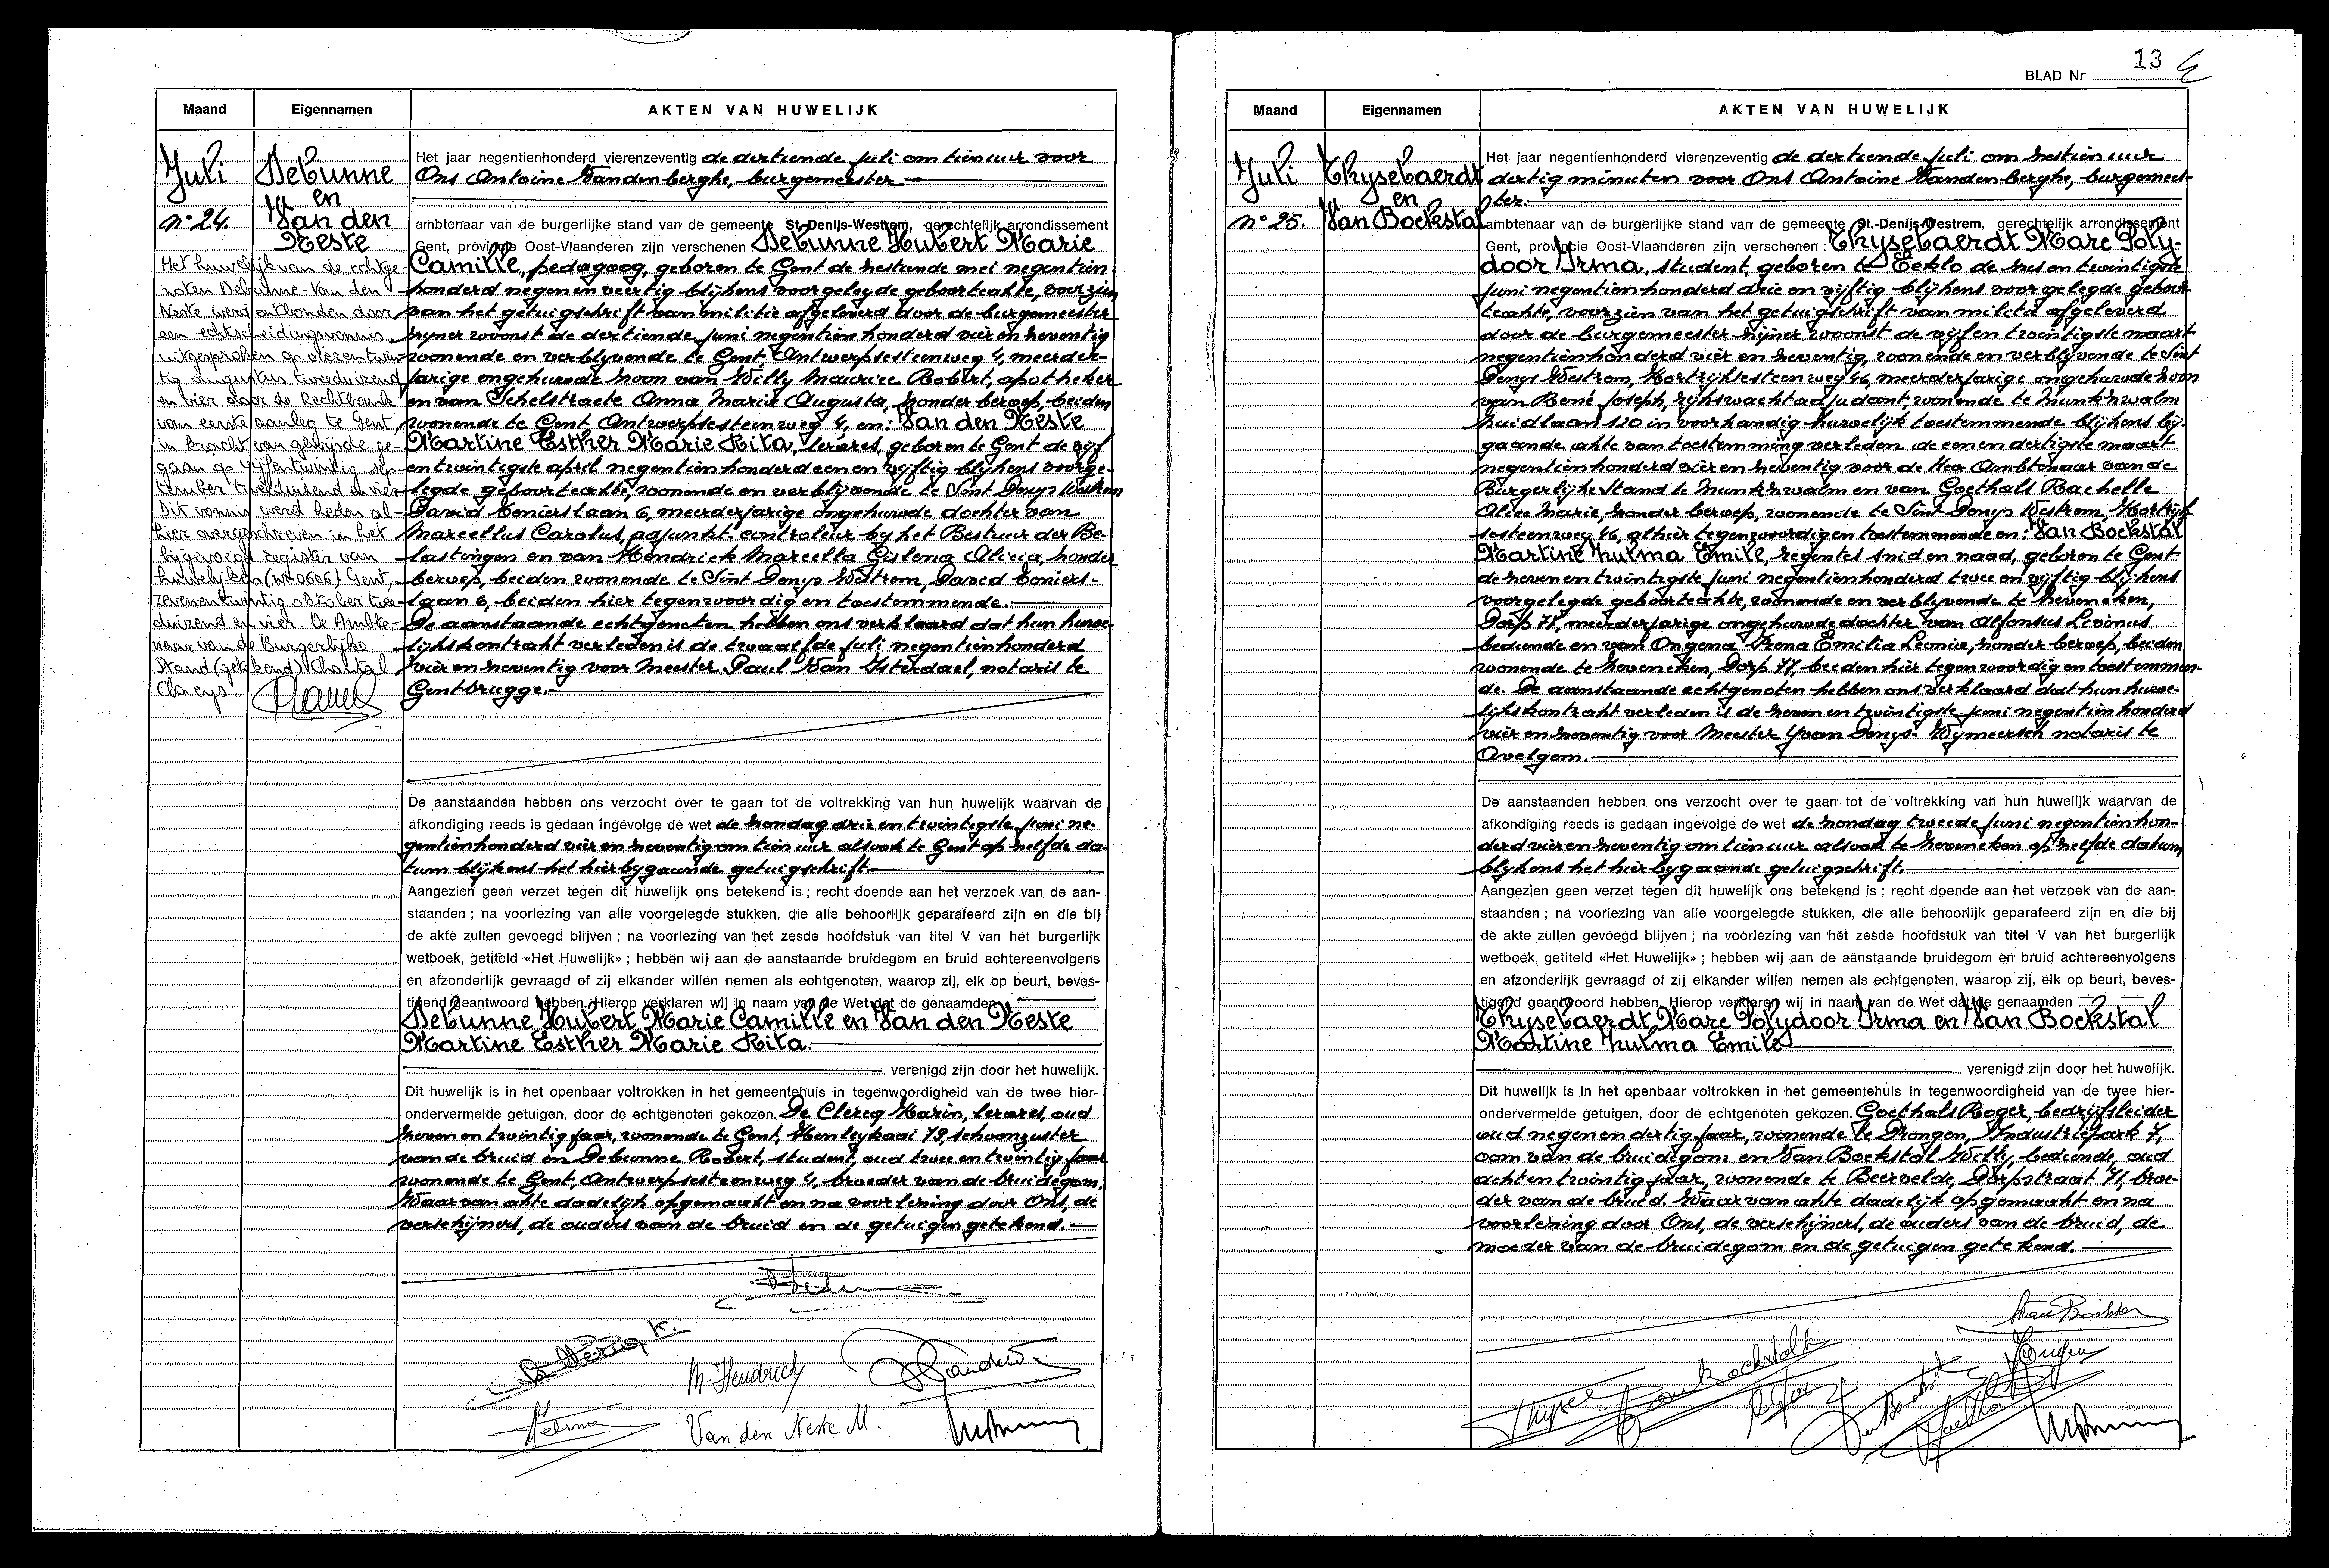 Maand
Eigennamen
AKTEN VAN HUWELIJK
Juli
n° 24.
Debunne
en
Van den
Neste
Het huwelijk van de echtge-
noten Debunne-Van den
Neste werd ontbonden door
een echtscheidingsvonnis,
uitgesproken op vierentwin-
tig augustus tweeduizend
en vier door de Rechtbank
van eerste aanleg te Gent,
in kracht van gewijsde ge-
gaan op vijfentwintig sep-
tember tweeduizend en vier
Dit vonnis werd heden al-
hier overgeschreven in het
bijgevoegd register van
huwelijken (nr 0606) Gent,
zevenentwintig oktober twee-
duizend en vier. De Ambte-
naar van de Burgerlijke
Stand (getekend) Chantal
Claeys.
Het jaar negentienhonderd vierenzeventig de dertiende juli om tien uur voor
Ons Antoine Vandenberghe, burgemeester
ambtenaar van de burgerlijke stand van de gemeente St-Denijs-Westrem, gerechtelijk arrondissement
Gent, provincie Oost-Vlaanderen zijn verschenen Debunne Hubert Marie
Camille, pedagoog, geboren te Gent de zestiende mei negentien
honderd negen en veertig blijkens voorgelegde geboorteakte, voorzien
van het getuigschrift van militie afgeleverd door de burgemeester
zijner woonst de dertiende juni negentien honderd vier en zeventig
wonende en verblijvende te Gent Antwerpsesteenweg 4, meerder-
jarige ongehuwde zoon van Willy Maurice Robert, apotheker
en van Schelstraete Anna Maria Augusta, zonder beroep, beiden
wonende te Gent, Antwerpsesteenweg 4, en: Van den Neste
Martine Esther Marie Rita, lerares, geboren te Gent de vijf
en twintigste april negentien honderd een en vijftig blijkens voorge-
legde geboorteakte, wonende en verblijvende te Sint Denys Westrem
David Tenierslaan 6, meerderjarige ongehuwde dochter van
Marcellus Carolus, adjunkt-controleur bij het Bestuur der Be-
lastingen en van Hendrick Marcella Gislena Alicia, zonder
beroep, beiden wonende te Sint Denys Westrem, David Teniers-
laan 6, beiden hier tegenwoordig en toestemmende.
De aanstaande echtgenoten hebben ons verklaard dat hun huwe-
lijkskontrakt verleden is de twaalfde juli negentienhonderd
vier en zeventig voor Meester Paul Van Isterdael, notaris te
Gentbrugge.
De aanstaanden hebben ons verzocht over te gaan tot de voltrekking van hun huwelijk waarvan de
afkondiging reeds is gedaan ingevolge de wet de zondag drie en twintigste juni ne-
gentienhonderd vier en zeventig om tien uur alsook te Gent op zelfde da-
tum blijkens het hierbijgaande getuigschrift.
Aangezien geen verzet tegen dit huwelijk ons betekend is ; recht doende aan het verzoek van de aan-
staanden ; na voorlezing van alle voorgelegde stukken, die alle behoorlijk geparafeerd zijn en die bij
de akte zullen gevoegd blijven ; na voorlezing van het zesde hoofdstuk van titel V van het burgerlijk
wetboek, getiteld «Het Huwelijk» ; hebben wij aan de aanstaande bruidegom en bruid achtereenvolgens
en afzonderlijk gevraagd of zij elkander willen nemen als echtgenoten, waarop zij, elk op beurt, beves-
tigend geantwoord hebben. Hierop verklaren wij in naam van de Wet dat de genaamden
Debunne Hubert Marie Camille en Van den Neste
Martine Esther Marie Rita.
verenigd zijn door het huwelijk.
Dit huwelijk is in het openbaar voltrokken in het gemeentehuis in tegenwoordigheid van de twee hier-
ondervermelde getuigen, door de echtgenoten gekozen. De Clercq Karin, lerares, oud
zeven en twintig jaar, wonende te Gent, Henleykaai 79, schoonzuster
van de bruid en Debunne Robert, student, oud twee en twintig jaar
wonende te Gent, Antwerpsesteenweg 4, broeder van de bruidegom.
Waarvan akte dadelijk opgemaakt en na voorlezing door Ons, de
verschijners, de ouders van de bruid en de getuigen getekend.
De Clercq K.
M. Hendrick
Van den Neste M.
BLAD Nr 13
Maand
Eigennamen
AKTEN VAN HUWELIJK
Juli
n° 25.
Thysebaerdt
en
Van Bockstal
Het jaar negentienhonderd vierenzeventig de dertiende juli om zestien uur
dertig minuten voor Ons Antoine Vandenberghe, burgemees-
ter.
ambtenaar van de burgerlijke stand van de gemeente St.-Denijs-Westrem, gerechtelijk arrondissement
Gent, provincie Oost-Vlaanderen zijn verschenen : Thysebaerdt Marc Poly-
door Irma, student, geboren te Eeklo de zes en twintigste
juni negentienhonderd drie en vijftig blijkens voorgelegde geboor-
teakte, voorzien van het getuigschrift van militie afgeleverd
door de burgemeester zijner woonst de vijf en twintigste maart
negentienhonderd vier en zeventig, wonende en verblijvende te Sint
Denys Westrem, Kortrijksesteenweg 46, meerderjarige ongehuwde zoon
van René Joseph, rijkswachtadjudant, wonende te Munkzwalm
Zuidlaan 120 in voorhandig huwelijk toestemmende blijkens bij-
gaande akte van toestemming verleden de een en dertigste maart
negentienhonderd vier en zeventig voor de Heer Ambtenaar van de
Burgerlijke Stand te Munkzwalm en van Goethals Rachelle
Alice Marie, zonder beroep, wonende te Sint Denys Westrem, Kortrijk-
sesteenweg 46, alhier tegenwoordig en toestemmende en: Van Bockstal
Martine Zulma Emile, regentes snid en naad, geboren te Gent
de zeven en twintigste juni negentienhonderd twee en vijftig blijkens
voorgelegde geboorteakte, wonende en verblijvende te Zeveneken,
Dorp 77, meerderjarige ongehuwde dochter van Alfonsus Levinus
bediende en van Ongena Irena Emilia Leonia, zonder beroep, beiden
wonende te Zeveneken, Dorp 77, beiden hier tegenwoordig en toestemmen-
de. De aanstaande echtgenoten hebben ons verklaard dat hun huwe-
lijkskontrakt verleden is de zeven en twintigste juni negentienhonderd
vier en zeventig voor Meester Yvan Denys-Wymeersch notaris te
Avelgem.
De aanstaanden hebben ons verzocht over te gaan tot de voltrekking van hun huwelijk waarvan de
afkondiging reeds is gedaan ingevolge de wet de zondag tweede juni negentienhon-
derd vier en zeventig om tien uur alsook te Zeveneken op zelfde datum
blijkens het hierbijgaande getuigschrift.
Aangezien geen verzet tegen dit huwelijk ons betekend is ; recht doende aan het verzoek van de aan-
staanden ; na voorlezing van alle voorgelegde stukken, die alle behoorlijk geparafeerd zijn en die bij
de akte zullen gevoegd blijven ; na voorlezing van het zesde hoofdstuk van titel V van het burgerlijk
wetboek, getiteld «Het Huwelijk» ; hebben wij aan de aanstaande bruidegom en bruid achtereenvolgens
en afzonderlijk gevraagd of zij elkander willen nemen als echtgenoten, waarop zij, elk op beurt, beves-
tigend geantwoord hebben. Hierop verklaren wij in naam van de Wet dat de genaamden
Thysebaerdt Marc Polydoor Irma en Van Bockstal
Martine Zulma Emile
verenigd zijn door het huwelijk.
Dit huwelijk is in het openbaar voltrokken in het gemeentehuis in tegenwoordigheid van de twee hier-
ondervermelde getuigen, door de echtgenoten gekozen. Goethals Roger, bedrijfsleider
oud negen en dertig jaar, wonende te Drongen, Industriepark 7,
oom van de bruidegom en Van Bockstal Willy, bediende, oud
acht en twintig jaar, wonende te Beervelde, Dorpstraat 71, broe-
der van de bruid. Waarvan akte dadelijk opgemaakt en na
voorlezing door Ons, de verschijners, de ouders van de bruid, de
moeder van de bruidegom en de getuigen getekend.